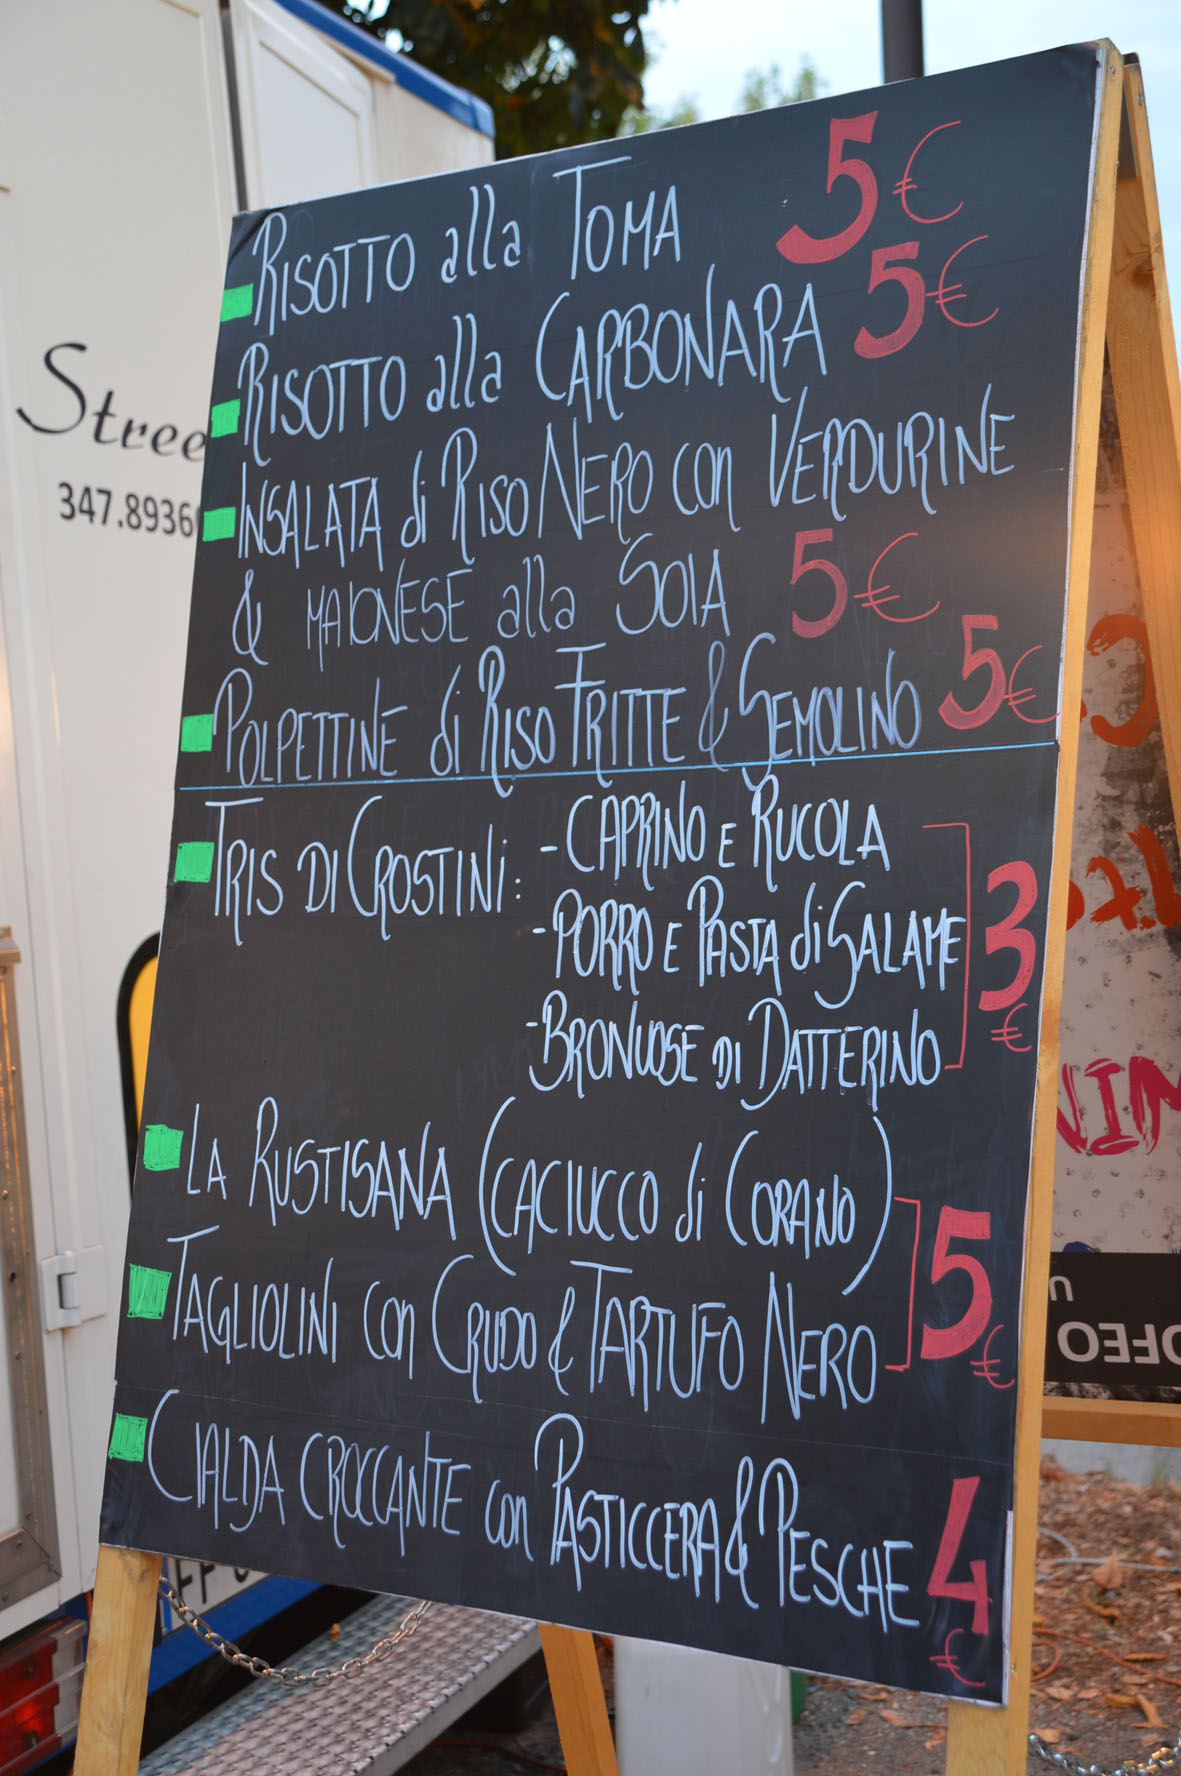 RISOTTO alla TOMA 5€
RISOTTO alla CARBONARA 5€
INSALATA di RISO NERO con VERDURINE
& MAIONESE alla SOIA 5€
POLPETTINE di RISO FRITTE & SEMOLINO 5€
TRIS DI CROSTINI: - CAPRINO E RUCOLA
- PORRO E PASTA di SALAME 3€
- BRONUOSE DI DATTERINO
LA RUSTISANA (CACIUCCO di CORANO)
TAGLIOLINI con CRUDO & TARTUFO NERO 5€
CIALDA CROCCANTE con PASTICCERA & PESCHE 4€
Stree
347.8936